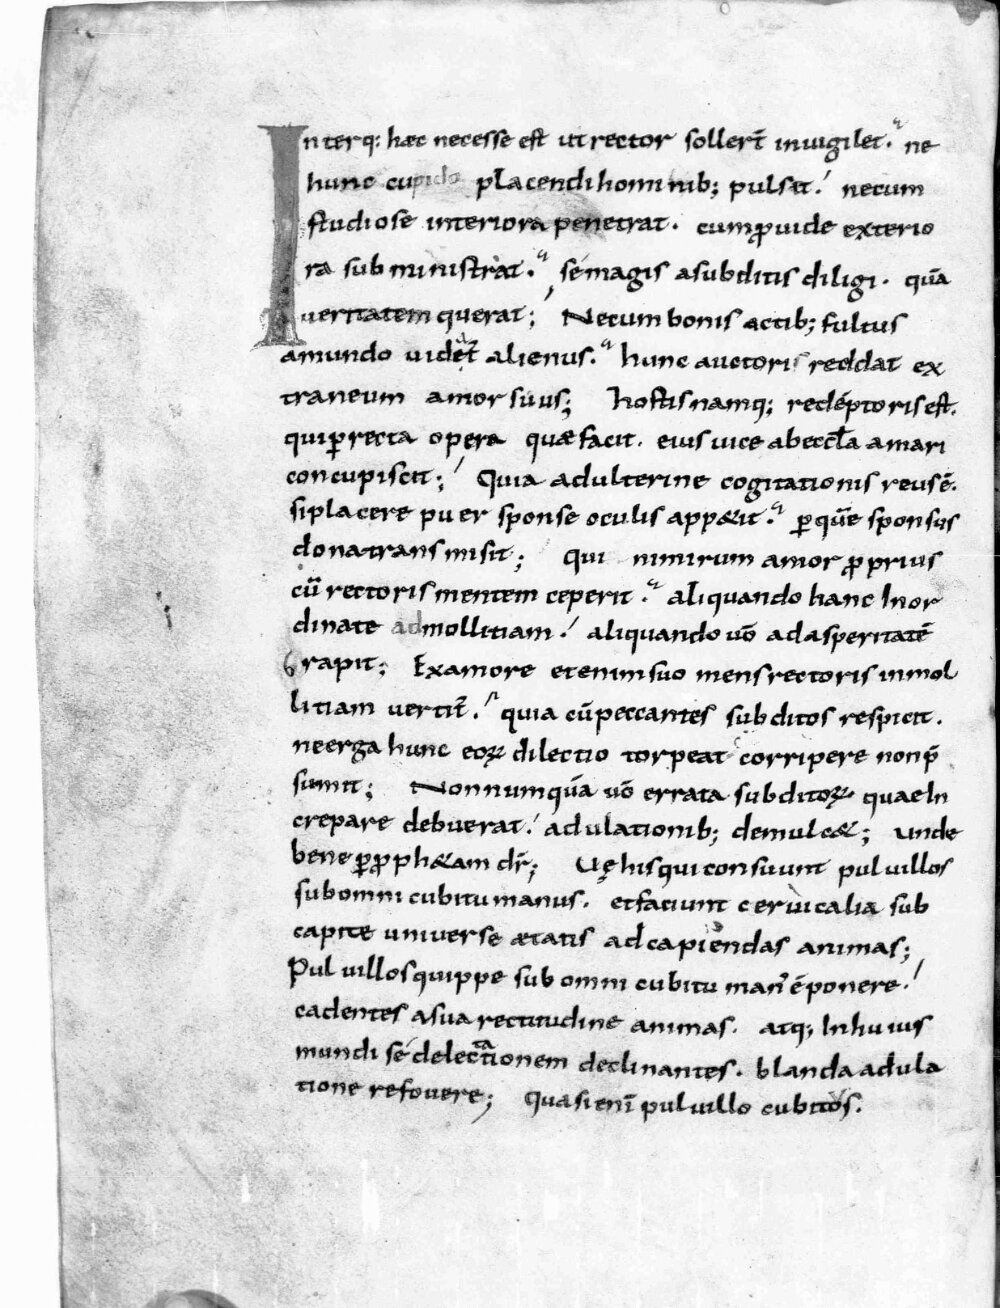 Interq: hæc necesse est ut rector sollert̄ inuigilet. ne
hunc cupido placendi hominib; pulset! necum
studiose interiora penetrat. cum ꝓuide exterio
ra subministrat. sé magis a subditis diligi. quā
ueritatem querat; Necum bonis actib; fultus
amundo uidet̄ alienus. hunc auctori reddat ex
traneum amor suus; hostis namq; redéptoris est.
qui ꝑ recta opera quæ facit. eius uice ab eccl̄a amari
concupiscit; Quia adulterine cogitationis reus ē.
si placere puer sponse oculis app&it. ꝑ quē sponsus
dona transmisit; Qui nimirum amor ꝓprius
cū rectoris mentem ceperit. aliquando hanc Inor
dinate ad mollitiam! aliquando uō ad asperitatē
rapit; Ex amore etenim suo mens rectoris in mol
litiam vertit̄. quia cū peccantes subditos respicit.
ne erga hunc eoꝝ dilectio torpeat corripere non p̄
sumit; Non numquā uō errata subditoꝝ quae In
crepare debuerat! adulationib; demulc&; unde
bene ꝑ ꝓph&am dr̄; Uę his qui consuunt puluillos
sub omni cubitu manus. et faciunt ceruicalia sub
capite universe ætatis ad capiendas animas;
Puluillos quippe sub omni cubitu man' ē ponere!
cadentes a sua rectitudine animas. atq; In huius
mundi sé delectationem declinantes. blanda adula
tione refovere; Quasi enī puluillo cubitos.